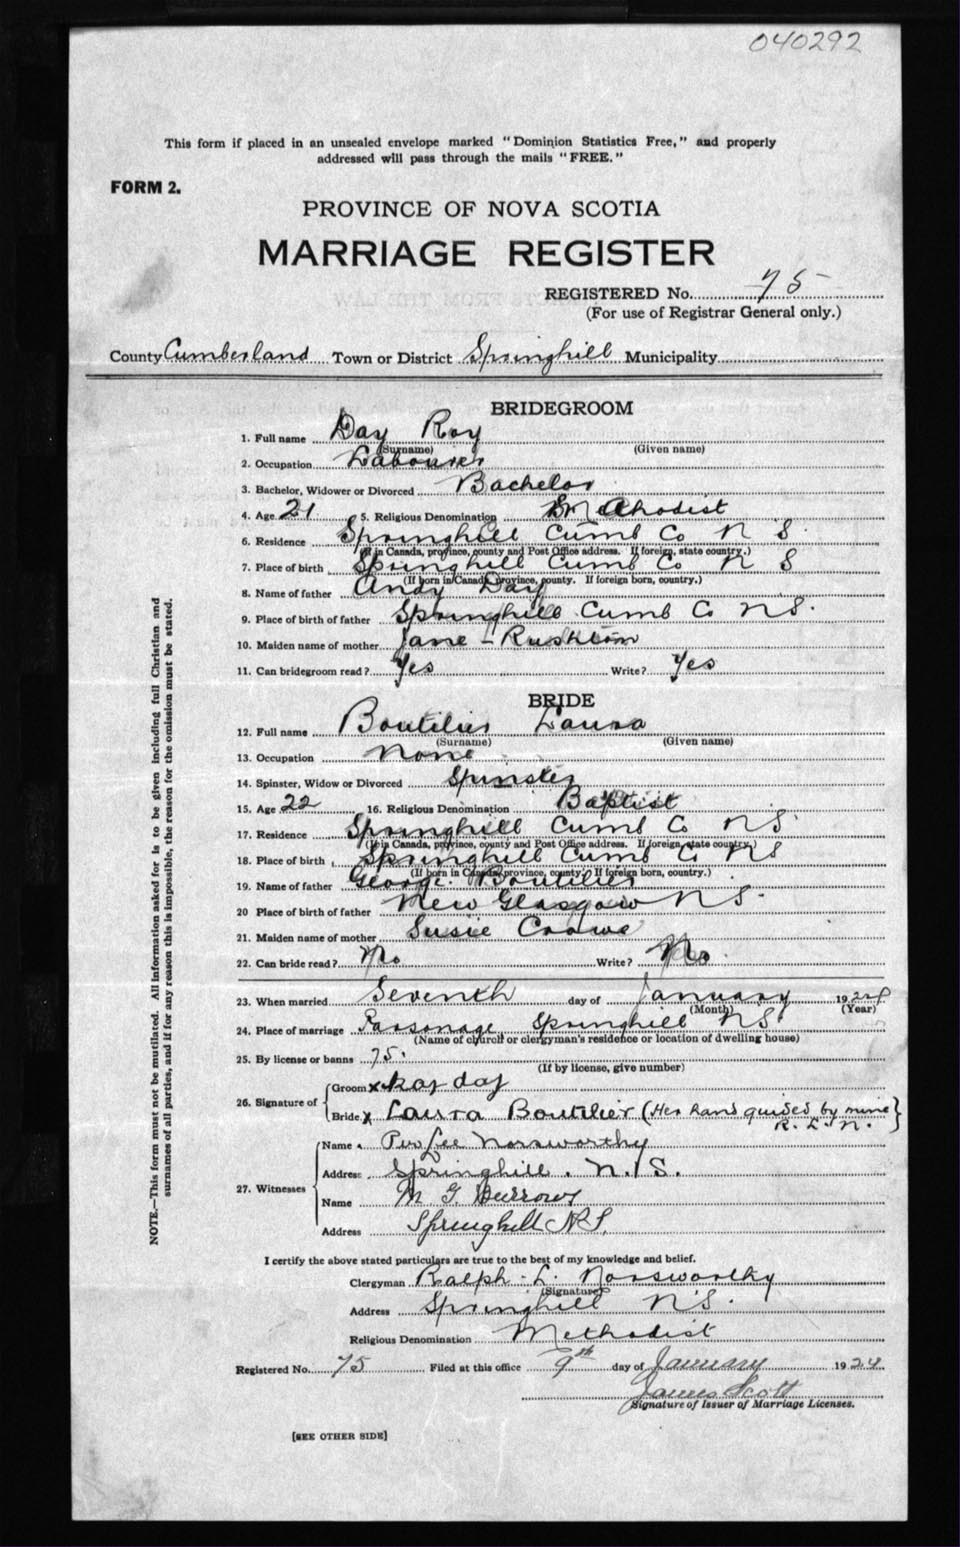 040292
This form if placed in an unsealed envelope marked "Dominion Statistics Free," and properly
addressed will pass through the mails "FREE."
FORM 2.
PROVINCE OF NOVA SCOTIA
MARRIAGE REGISTER
REGISTERED No. 75
(For use of Registrar General only.)
County Cumberland Town or District Springhill Municipality
BRIDEGROOM
1. Full name Day Roy
(Surname) (Given name)
2. Occupation Labourer
3. Bachelor, Widower or Divorced Bachelor
4. Age 21 5. Religious Denomination Methodist
6. Residence Springhill Cumb Co N S.
(If in Canada, province, county and Post Office address. If foreign, state country.)
7. Place of birth Springhill Cumb Co N S
(If born in Canada, province, county. If foreign born, country.)
8. Name of father Andy Day
9. Place of birth of father Springhill Cumb Co N S.
10. Maiden name of mother Jane - Rushton
11. Can bridegroom read? Yes Write? Yes
BRIDE
12. Full name Boutilier Laura
(Surname) (Given name)
13. Occupation None
14. Spinster, Widow or Divorced Spinster
15. Age 22 16. Religious Denomination Baptist
17. Residence Springhill Cumb Co N S.
(If in Canada, province, county and Post Office address. If foreign, state country.)
18. Place of birth Springhill Cumb Co N S
(If born in Canada, province, county. If foreign born, country.)
19. Name of father George Boutilier
20 Place of birth of father New Glasgow N S.
21. Maiden name of mother Susie Crowe
22. Can bride read? No Write? No
23. When married Seventh day of January 1924
(Month) (Year)
24. Place of marriage Parsonage Springhill N S
(Name of church or clergyman's residence or location of dwelling house)
25. By license or banns 75.
(If by license, give number)
26. Signature of
Groom x Roy day
Bride x Laura Boutilier (Her hand guided by mine
R. L. N.)
27. Witnesses
Name Lee Norsworthy
Address Springhill. N. S.
Name M G Burrows
Address Springhill N S.
I certify the above stated particulars are true to the best of my knowledge and belief.
Clergyman Ralph. L. Norsworthy
(Signature)
Address Springhill N S.
Religious Denomination Methodist
Registered No. 75 Filed at this office 9th day of January 1924
James Scott
Signature of Issuer of Marriage Licenses.
[SEE OTHER SIDE]
NOTE.—This form must not be mutilated. All information asked for is to be given including full Christian and
surnames of all parties, and if for any reason this is impossible, the reason for the omission must be stated.